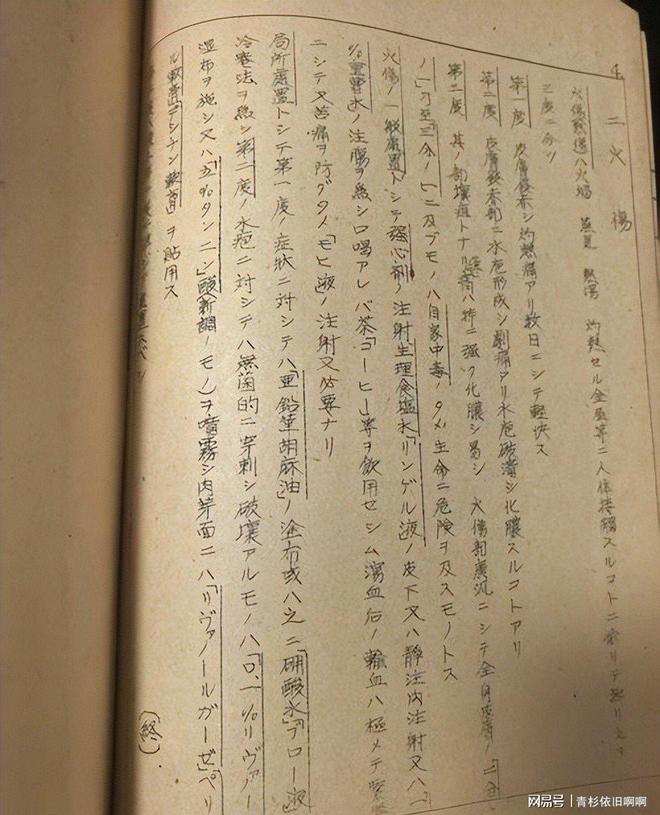 4
二 火傷
火傷 ハ火焔 蒸気 熱湯 灼熱セル金属等ニ人体接触スルコトニ
三度ニ分ツ
第一度 皮膚発赤シ灼熱痛アリ数日ニシテ軽快ス
第二度 皮膚発赤部ニ水疱形成シ劇痛アリ水疱破潰シ化膿スルコトアリ
第三度 其ノ部壊疽トナリ 特ニ強ク化膿シ易シ 火傷部広汎ニシテ全身皮膚ノ
ノ一乃至三分ノ一ニ及ブモノハ自家中毒ノタメ生命ニ危険ヲ及スモノトス
火傷ノ一般處置トシテ強心剤ノ注射生理食塩水「リンゲル液」ノ皮下又ハ静注内注射又ハ
%重曹水ノ注腸ヲ為シ口喝アレバ茶「コーヒー」等ヲ飲用セシム瀉血后ノ輸血ハ極メテ
ニシテ又苦痛ヲ防グタメ「モヒ液」ノ注射又必要ナリ
局所處置トシテ第一度ノ症状ニ対シテハ「亜鉛華胡麻油」ノ塗布或ハ之ニ「硼酸水」「ブロー液」
冷罨法ヲ為シ第二度ノ水疱ニ対シテハ無菌的ニ穿刺シ破壊アルモノハ「〇.一%リヴァノー
湿布ヲ施シ又ハ「五%タンニン」酸(新調ノモノ)ヲ噴霧シ肉芽面ニハ「リヴァノールガーゼ」「ペリ
ル軟膏」「デシチン軟膏」ヲ貼用ス
(終)
网易号 | 青杉依旧啊啊